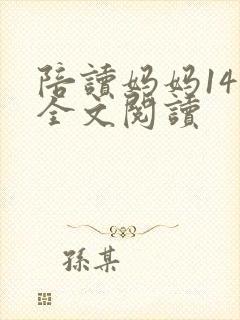 陪讀妈妈14
全文閱讀
孫某